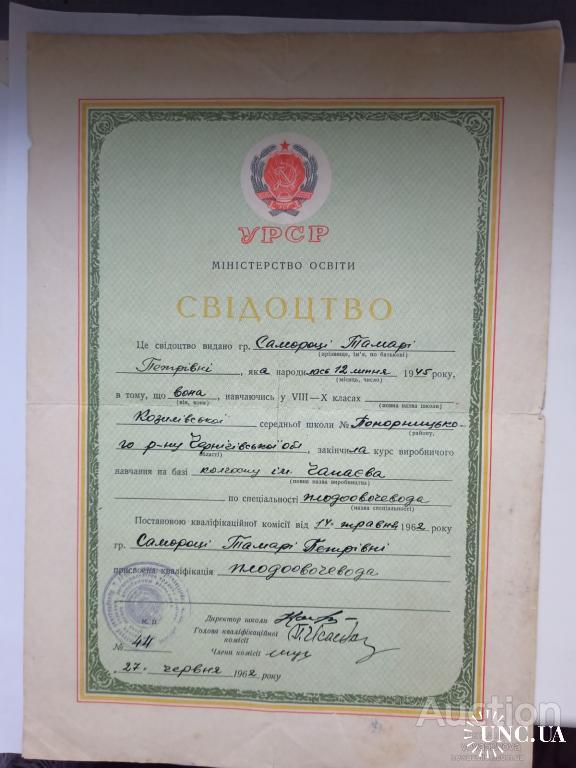 УРСР
МІНІСТЕРСТВО ОСВІТИ
СВІДОЦТВО
Це свідоцтво видано гр. Самороці Тамарі
(прізвище, ім'я, по батькові)
Петрівні, яка народилась 12 липня 1945 року,
(місяць, число)
в тому, що вона, навчаючись у VIII—X класах
(він, вона) (повна назва школи)
Козилівської середньої школи № Понорницько-
району,
го р-ну Чернігівської обл, закінчила курс виробничого
області
навчання на базі колгоспу ім. Чапаєва
(повна назва виробництва)
по спеціальності плодоовочевода
(назва спеціальності)
Постановою кваліфікаційної комісії від 14 травня 1962 року
гр. Самороці Тамарі Петрівні
присвоєна кваліфікація плодоовочевода
Директор школи
М. П.
Голова кваліфікаційної
комісії
№ 44
Члени комісії
27. червня 1962 року
Auction
UNC.UA